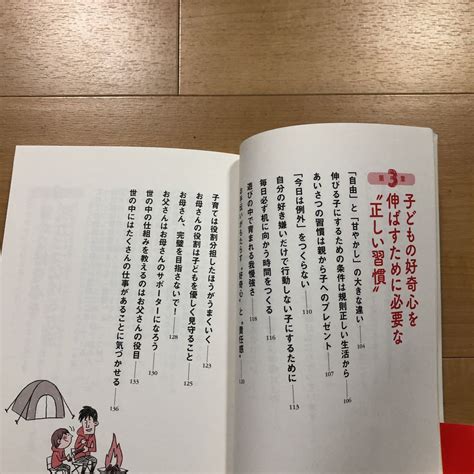 第3章
子どもの好奇心を
伸ばすために必要な
“正しい習慣”
「自由」と「甘やかし」の大きな違い 104
伸びる子にするための条件は規則正しい生活から 106
あいさつの習慣は親から子へのプレゼント 107
「今日は例外」をつくらない
自分の好き嫌いだけで行動しない子にするために
毎日必ず机に向かう時間をつくる
遊びの中で育まれる我慢強さ 118
お手伝いがもたらす“好奇心”と“責任感” 120
子育ては役割分担したほうがうまくいく 123
お母さんの役割は子どもを優しく見守ること 125
お母さん、完璧を目指さないで! 128
お父さんはお母さんのサポーターになろう 130
世の中の仕組みを教えるのはお父さんの役目 133
世の中にはたくさんの仕事があることに気づかせる 136